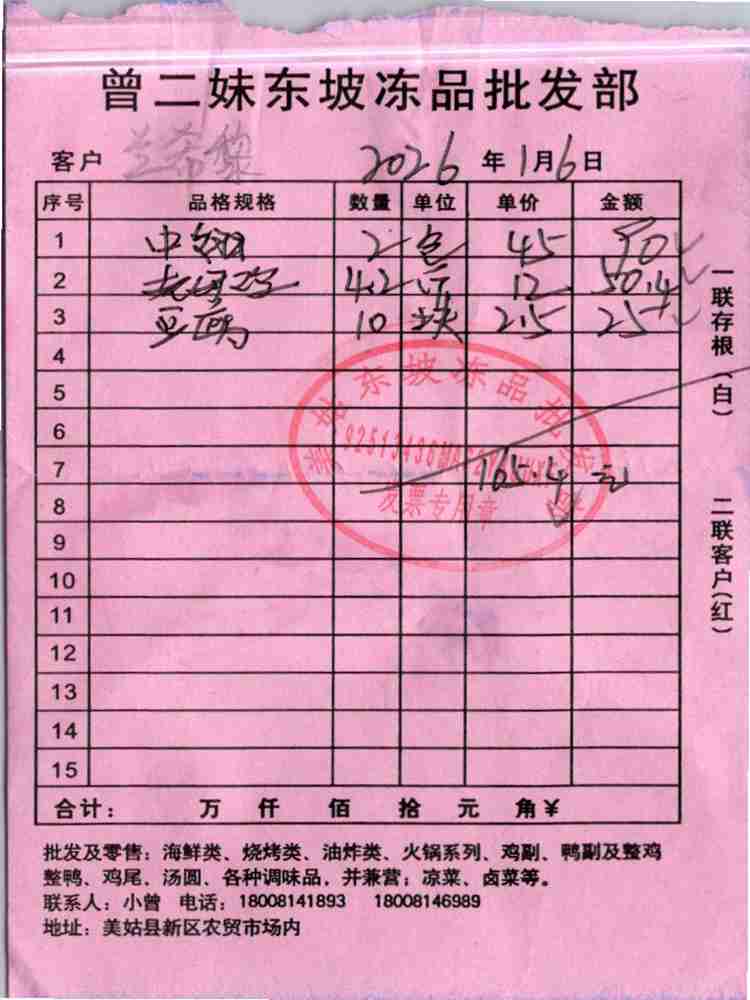 曾二妹东坡冻品批发部
客户 兰希黎 2026年1月6日
序号 品格规格 数量 单位 单价 金额
1 中翅 2 包 45 90
2 12 50.4
4.2
3 豆腐 10 块 2.5 25
4
5
6
7 165.4元
8
9
10
11
12
13
14
15
合计： 万 仟 佰 拾 元 角￥
批发及零售：海鲜类、烧烤类、油炸类、火锅系列、鸡副、鸭副及整鸡
整鸭、鸡尾、汤圆、各种调味品，并兼营：凉菜、卤菜等。
联系人：小曾 电话：18008141893 18008146989
地址：美姑县新区农贸市场内
一联存根（白）
二联客户（红）
美姑东坡冻品批发部
发票专用章